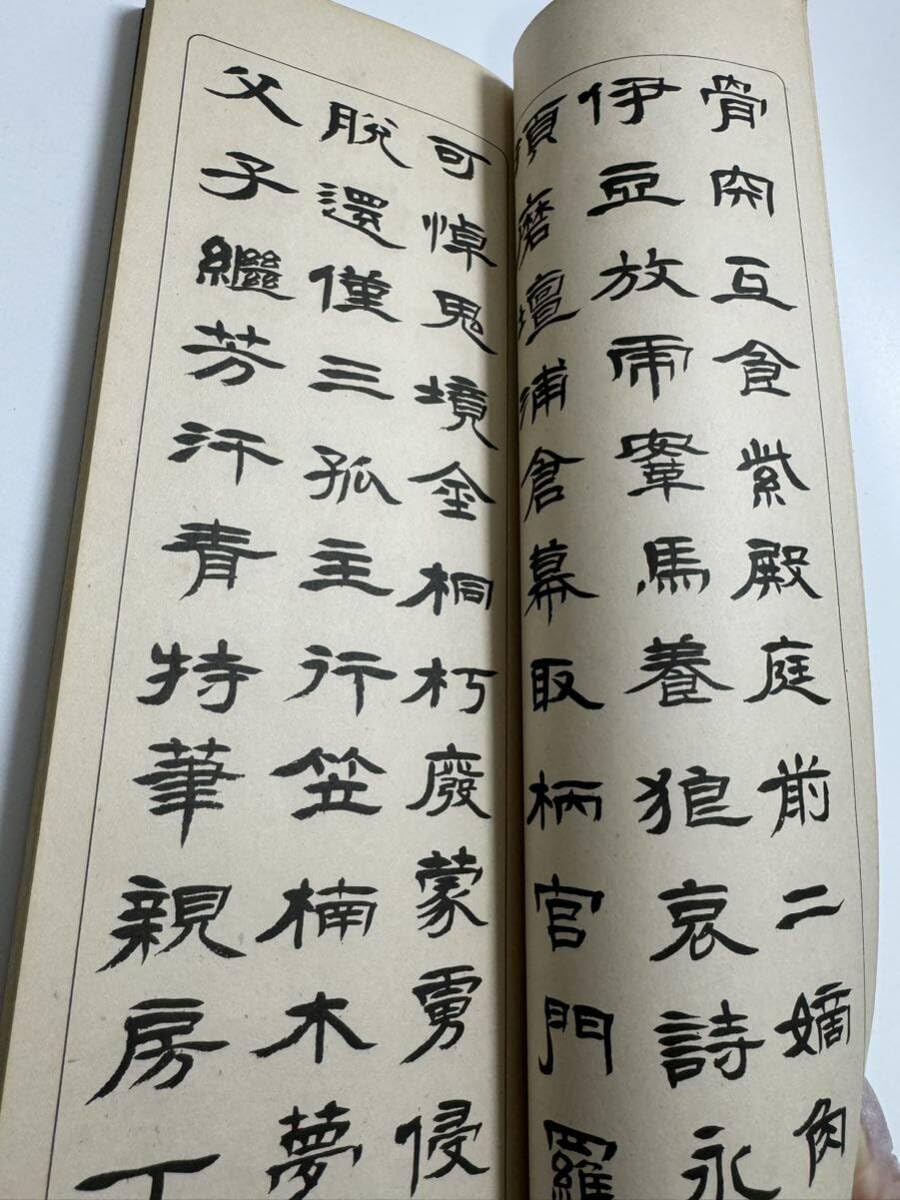 骨肉互食紫殿庭前二嫡
伊豆放虎鞌馬養狼哀詩永
須磨壇浦倉幕取柄官門羅
可悼鬼境金桐朽廢蒙虜侵
脫還僅三孤主行笠楠木夢
父子繼芳汗青特筆親房